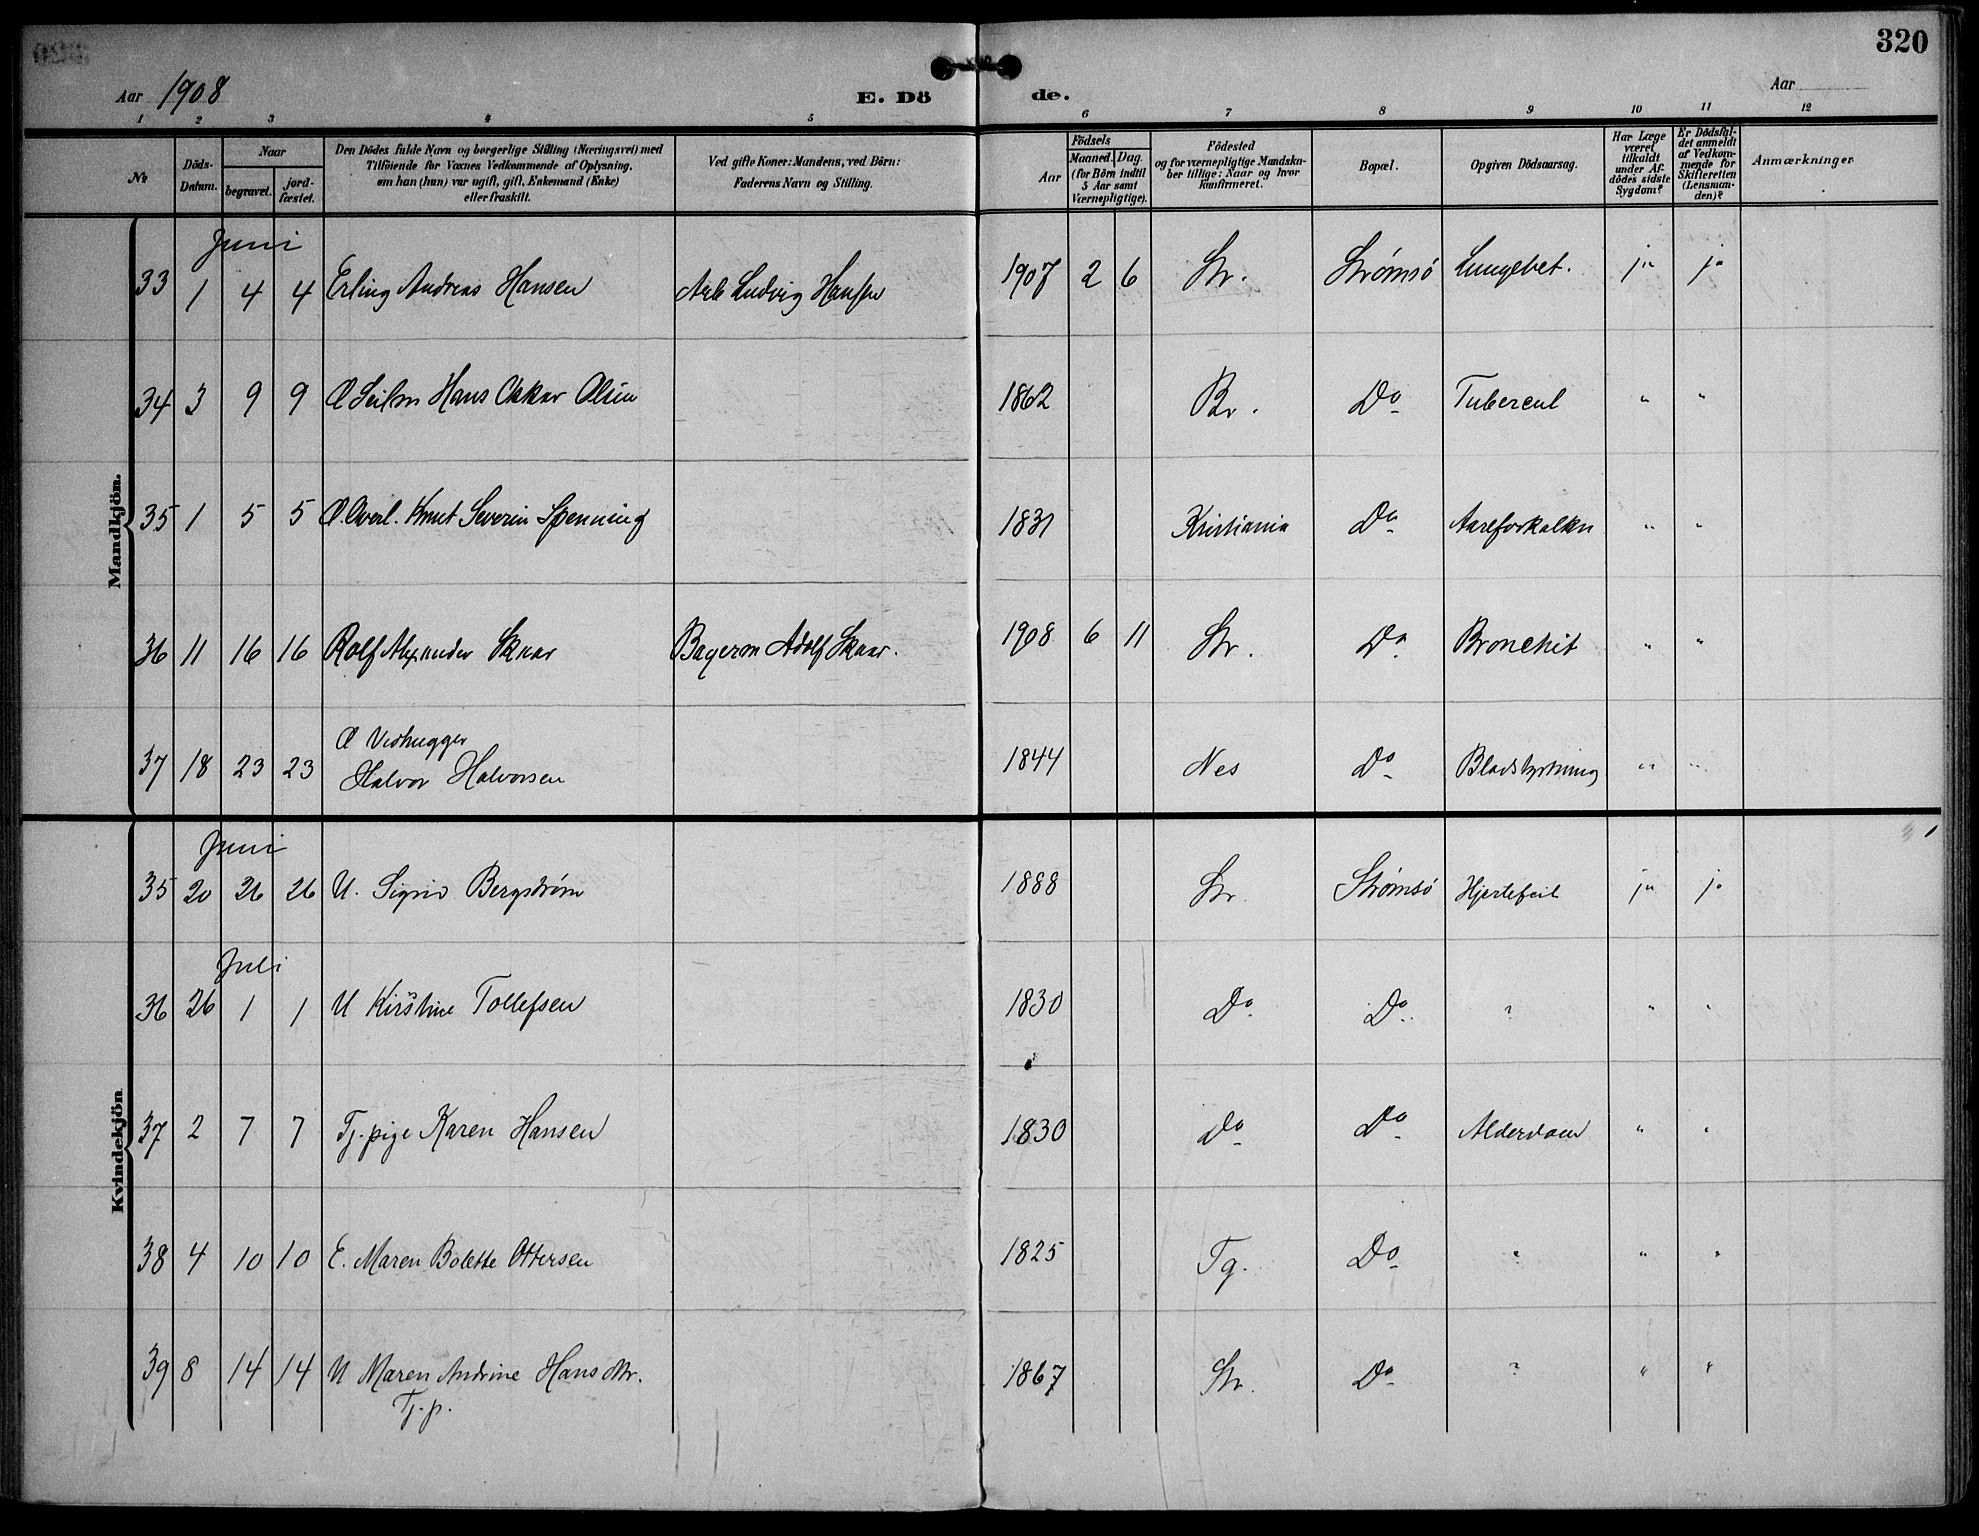 320
Aar 1908
E. Dö
de.
Aar
1 2 3 4 5 6 7 8 9 10 11 12
Nr
Döds-
Datum.
Naar
begravet.
jord-
fæstet.
Den Dödes fulde Navn og borgerlige Stilling (Næringsvei) med
Tilföiende for Voxnes Vedkommende af Oplysning,
om han (hun) var ugift, gift, Enkemand (Enke)
eller fraskilt.
Ved gifte Koner: Mandens, ved Börn:
Faderens Navn og Stilling.
Födsels
Aar
Maaned. Dag.
(for Börn indtil
5 Aar samt
Værnepligtige).
Födested
og for værnepligtige Mandska-
ber tillige: Naar og hvor
konfirmeret.
Bopæl.
Opgiven Dödsaarsag.
Har Læge
været
tilkaldt
under Af-
dödes sidste
Sygdom?
Er Dödsfal-
det anmeldt
af Vedkom-
mende for
Skifteretten
(Lensman-
den)?
Anmærkninger
Mandkjön.
Juni
33 1 4 4 Erling Andreas Hansen Arb Ludvig Hansen 1907 2 6 Str. Strømsø Lungebet. ja ja
34 3 9 9 Hans Oskar Olsen 1862 Br. Do Tubercul " "
35 1 5 5 Knut Severin Spenning 1831 Kristiania Do Aareforkalkn " "
36 11 16 16 Rolf Alexander Skaar Bagerm Adolf Skaar. 1908 6 11 Str. Do Bronchit " "
Vedhugger
37 18 23 23 Halvor Halvorsen 1844 Nes Do Blodstyrtning " "
Kvindekjön
Juni
35 20 26 26 U. Sigrid Bergstrøm 1888 Str. Strømsø Hjertefeil ja ja
Juli
36 26 1 1 U Kirstine Tollefsen 1830 Do Do ? " "
37 2 7 7 Tj. pige Karen Hansen 1830 Do Do Alderdom " "
38 4 10 10 E. Maren Bolette Ottersen 1825 Tg. Do " " "
39 8 14 14 U Maren Andrine Hans dtr. 1867 Str. Do ? " "
Tj. p.